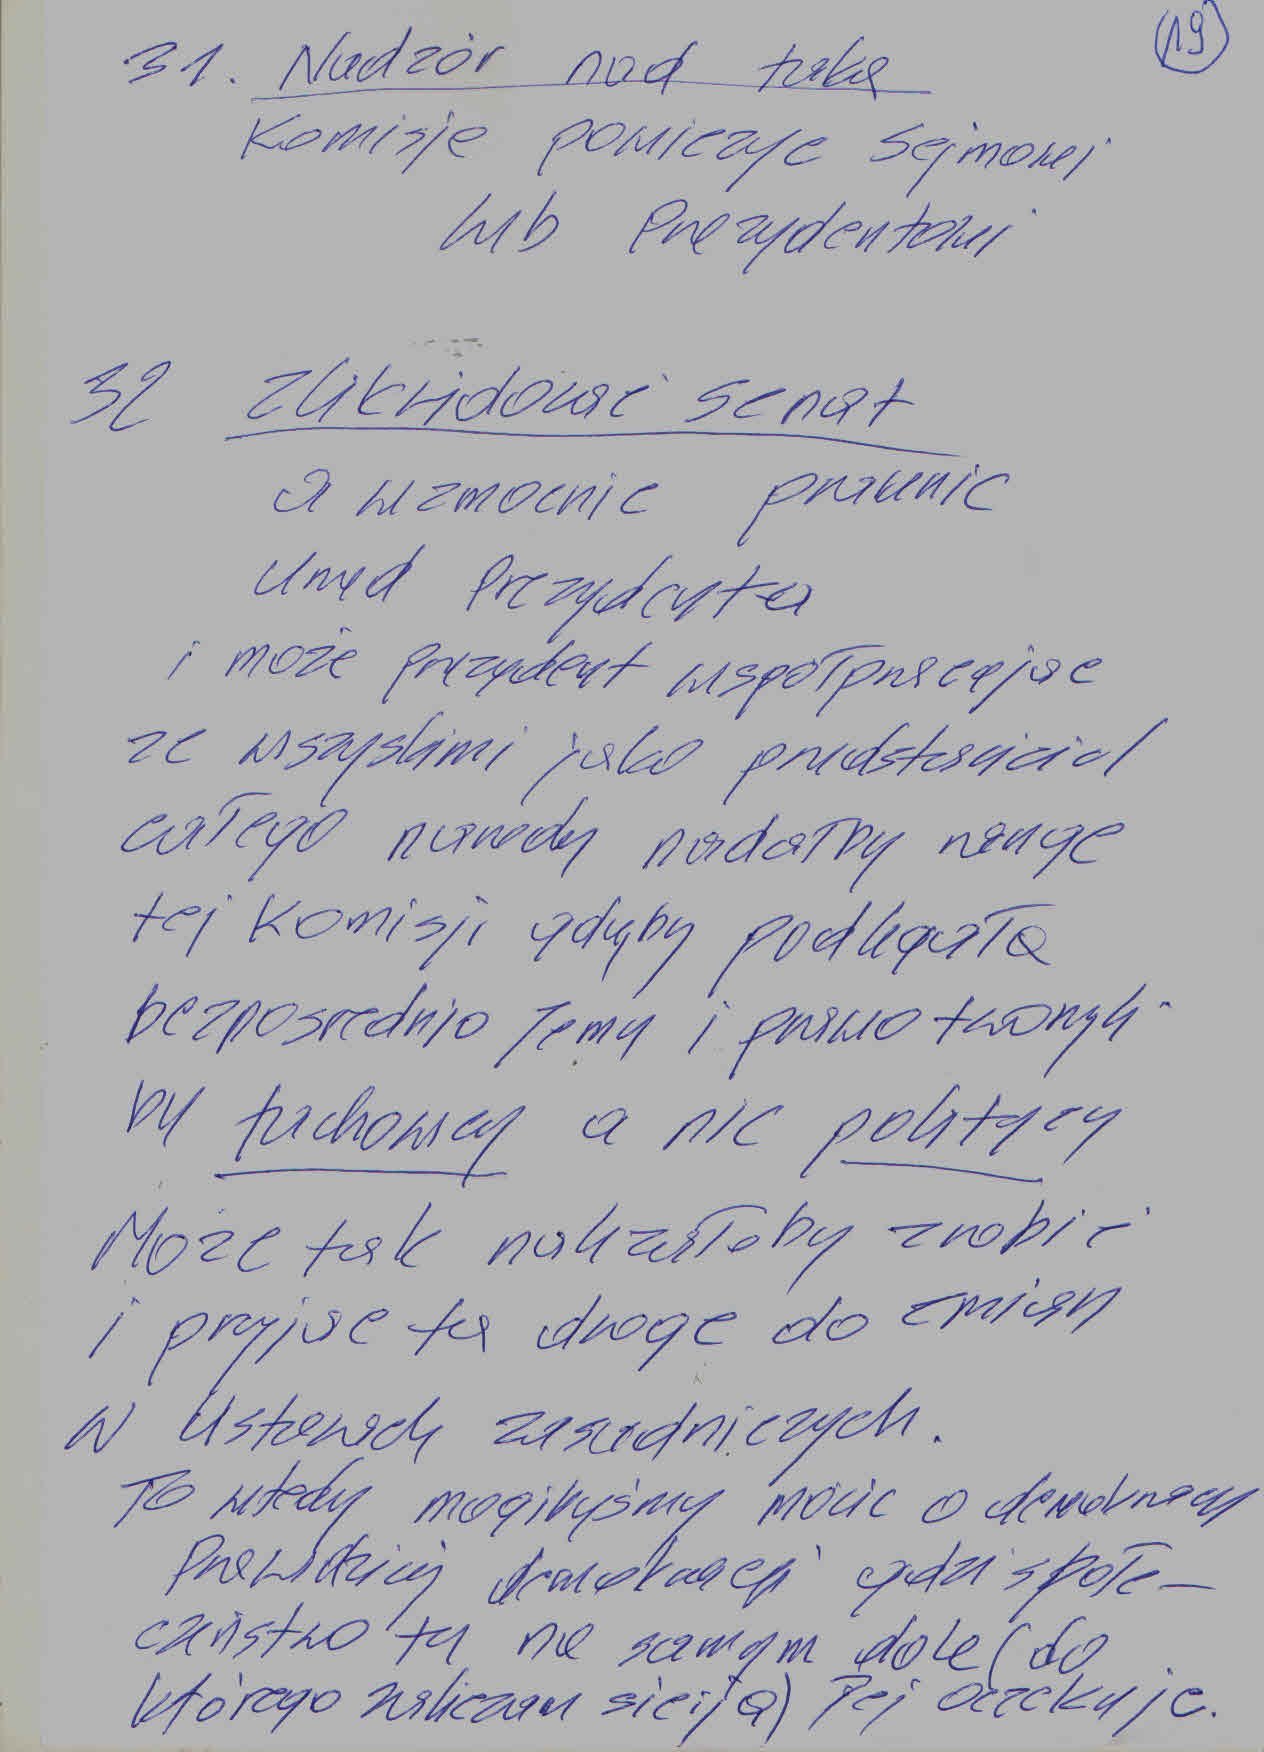 19
31. Nadzór nad taką
Komisję powierzyć Sejmowi
lub Prezydentowi
32 Zlikwidować senat
a wzmocnić prawnie
Urząd Prezydenta
i może prezydent współpracując
ze wszyskimi jako przedstawiciel
całego narodu nadałby rangę
tej Komisji gdyby podlegała
bezpośrednio Jemu i prawo tworzyli
by fachowcy a nie politycy
Może tak należałoby zrobić
i przyjąć tą drogę do zmian
w Ustawach zasadniczych.
To wtedy moglibyśmy mówić o demokracji
Prawdziwej demokracji gdzi społe-
czeństwo tu na samym dole (do
którego zaliczam się i ja) Jej oczekuje.